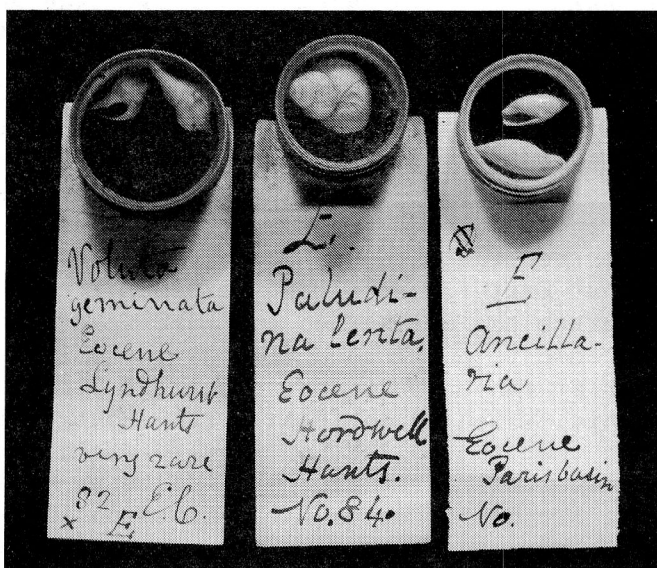 Voluta
geminata
Eocene
Lyndhurst
Hants
very rare
82 E.C.
x E
E.
Paludi-
na lenta.
Eocene
Hordwell
Hants.
No. 84.
E
Ancilla-
ria
Eocene
Paris basin
No.